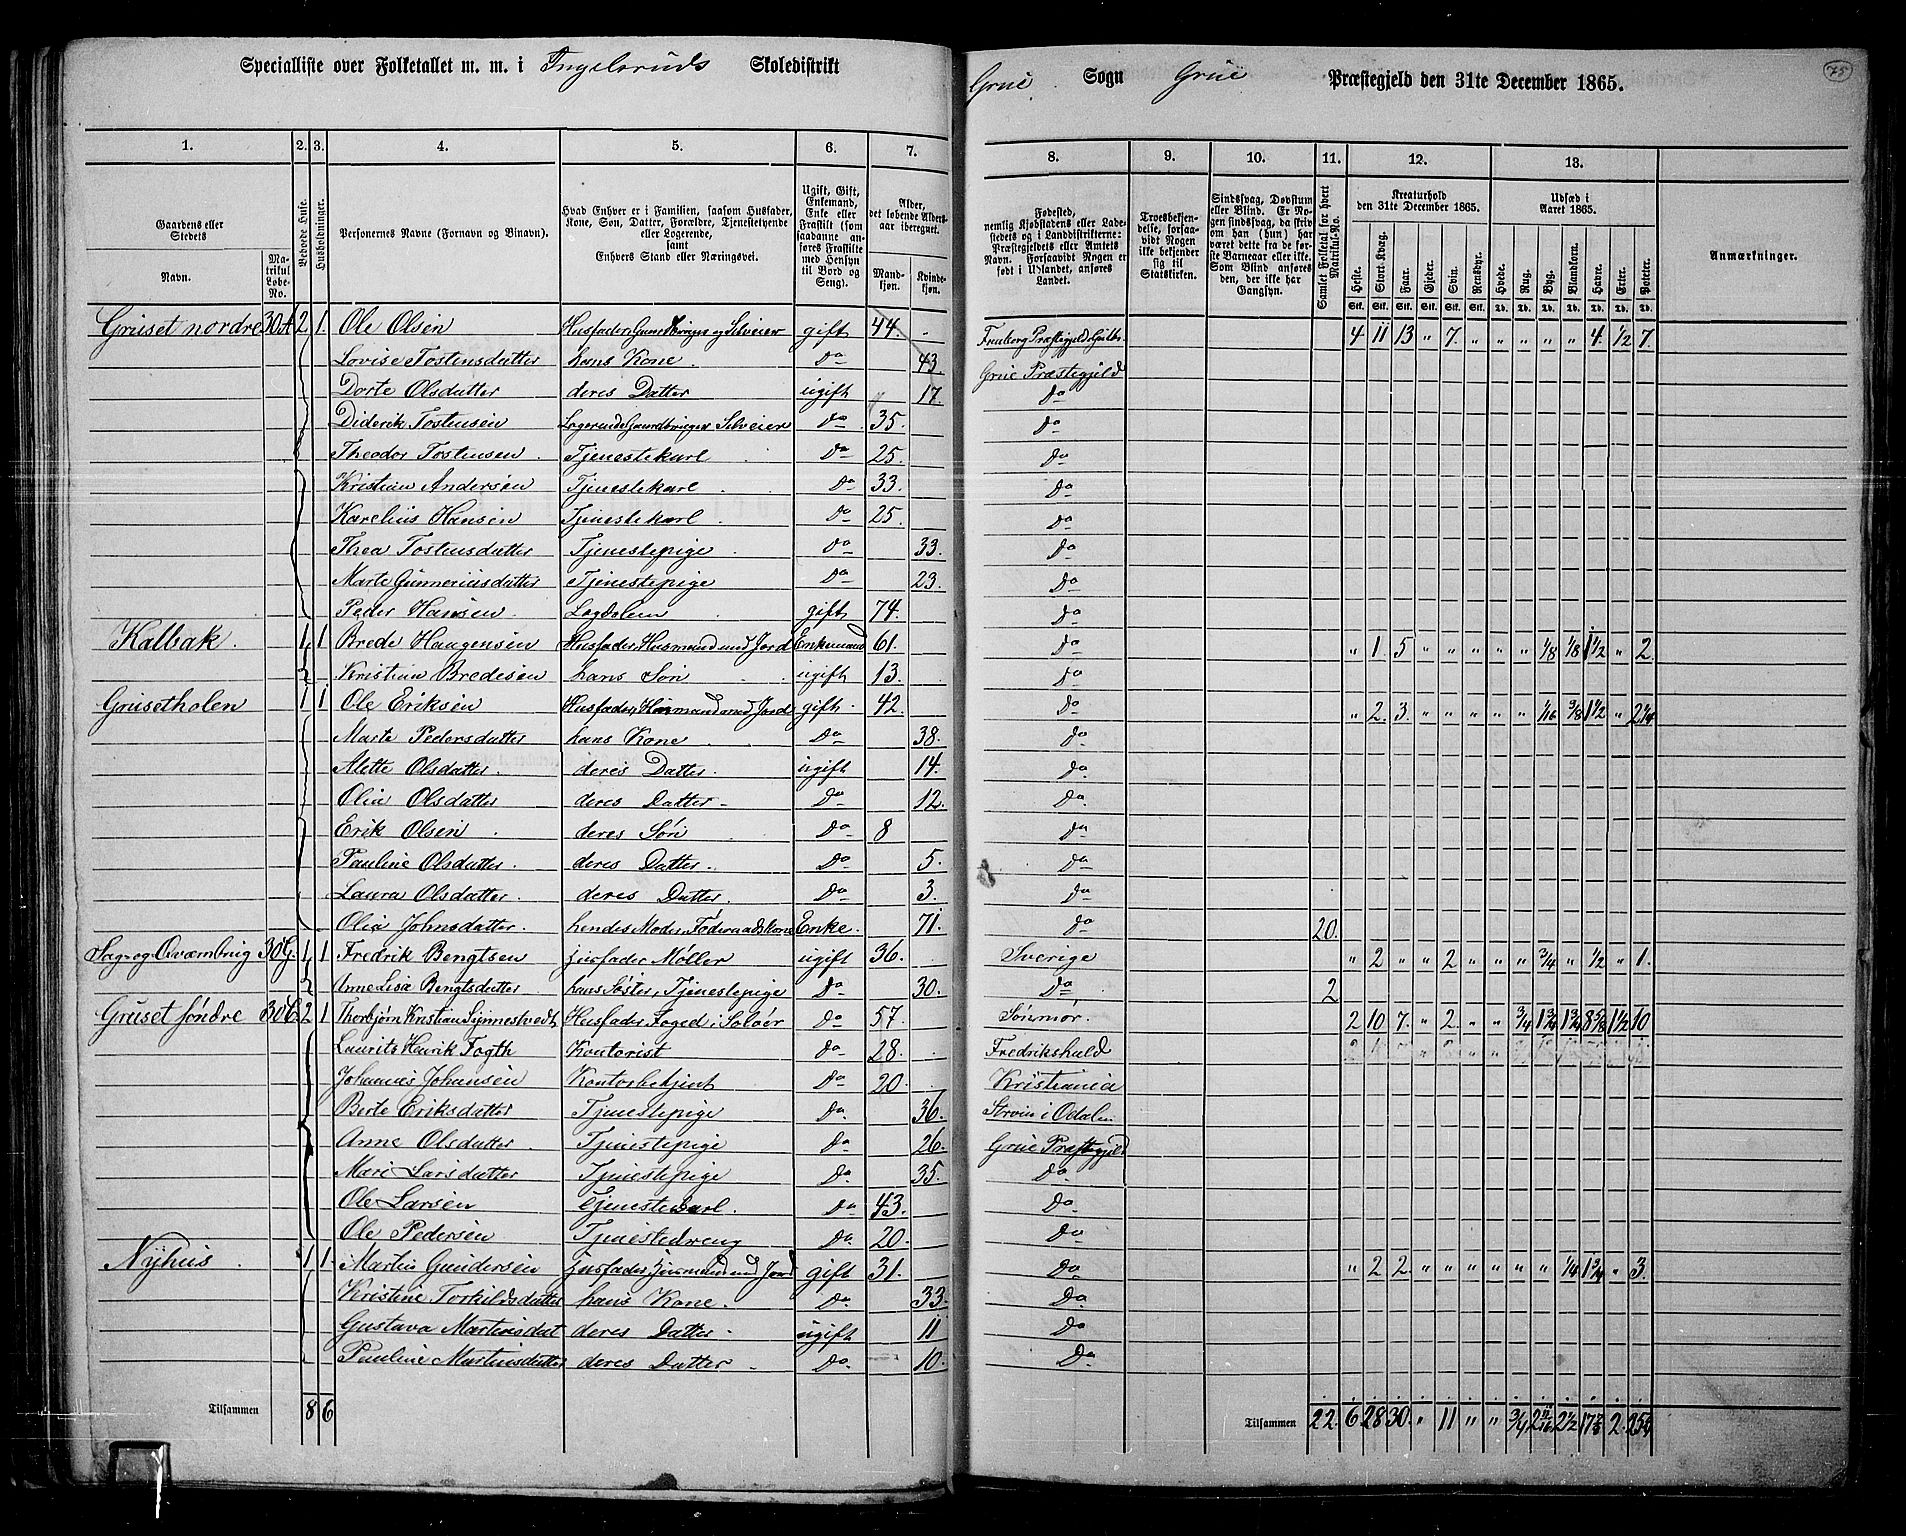 Specialliste over Folketallet m. m. i Ingelsruds Skoledistrikt Grue Sogn Grue Præstegjeld den 31te December 1865. 75
1. 2. 3. 4. 5. 6. 7. 8. 9. 10. 11. 12. 13.
Gaardens eller Stedets Navn. Matrikul Løbe-No. Beboede Huse. Husholdninger. Personernes Navne (Fornavn og Binavn). Hvad Enhver er i Familien, saasom Husfader, Kone, Søn, Datter, Forældre, Tjenestetyende eller Logerende, samt Enhvers Stand eller Næringsvei. Ugift, Gift, Enkemand, Enke eller Frastilt (som saadanne anføres Frastilte med Hensyn til Bord og Seng). Alder, det løbende Alders-aar iberegnet. Mandkjøn. Kvindekjøn.
Fødested, nemlig Kjøbstadens eller Ladestedets og i Landdistrikterne: Præstegjeldets eller Amtets Navn. Forsaavidt Nogen er født i Udlandet, anføres Landet. Troesbekjendelse, forsaavidt Nogen ikke bekjender sig til Statskirken. Sindssvag, Døvstum eller Blind. Er Nogen sindssvag, da skrives om han (hun) har været dette fra de første Barneaar eller ikke. Som Blind anføres den, der ikke har Gangsyn. Samlet Folketal for hvert Matrikul-No. Kreaturhold den 31te December 1865. Udsæd i Aaret 1865. Anmærkninger.
Heste. Stort Kvæg. Faar. Gjeder. Svin. Rensdyr. Hvede. Rug. Byg. Blandkorn. Havre. Erter. Poteter.
Gruset nordre 30A 2 1. Ole Olsen Husfader, Gaardbruger og Selveier gift 44. 4 11 13 " 7. " " " " " 4. 1/2 7.
Lovise Tostensdatter hans Kone. Do 43. Grue Præstegjeld
Dorte Olsdatter deres Datter ugift 17. Do
Diderik Tostensen Logerende Gaardbruger Selveier Do 35. Do
Theodor Tostensen. Tjenestekarl Do 25. Do
Kristian Andersen Tjenestekarl. Do 33. Do
Karelius Hansen Tjenestekarl Do 25. Do
Thea Tostensdatter Tjenestepige. Do 33. Do
Marte Gunneriusdatter Tjenestepige Do 23. Do
Peder Hansen. Lægdslem gift 74. Do
Kalbak. 1 1 Brede Haagensen Husfader, Husmand med Jord Enkemand 61. Do " 1. 5 " " " " " 1/8 1/8 1 1/2 " 2.
Kristian Bredesen hans Søn ugift 13. Do
Grusetholen 1 1 Ole Eriksen Husfader, Husmand med Jord gift. 42. Do " 2. 3. " " " " " 1/16 3/8 1 1/2 " 2 1/4
Marte Pedersdatter hans Kone. Do 38. Do
Mette Olsdatter. deres Datter. ugift 14. Do
Olia Olsdatter deres Datter. Do 12. Do.
Erik Olsen. deres Søn Do 8 Do
Pauline Olsdatter. deres Datter. Do 5. Do
Laura Olsdatter. deres Datter. Do 3. Do
Olia Johnsdatter. hendes Moder, Føderaadskone Enke. 71. Do 20.
Sag-og Qværnbrug 30G. 1 1 Fredrik Bengtsen Husfader Møller ugift 36. Sverige " 2 " " 2 " " " 3/4 " 1/2 " 1.
Anne Lisa Bengtsdatter. hans Søster, Tjenestepige Do 30. Do 2
Gruset søndre 30C. 2 1 Thorbjørn Kristian Synnestvedt Husfader Foged i Soløer Do 57. Sønmør. 2 10 7. " 2. " " 3/4 1 3/4 1 3/4 8 5/8 1 1/2 10
Laurits Henrik Fogth Kontorist Do 28. Fredrikshald
Johannes Johansen Kontorbetjent Do 20. Kristiania
Berte Eriksdatter Tjenestepige Do. 36. Strøm i Odalen
Anne Olsdatter. Tjenestepige Do 26. Grue Præstegjeld
Mari Larsdatter Tjenestepige Do. 35. Do.
Ole Larsen Tjenestekarl. Do 43. Do
Ole Pedersen Tjenestedreng Do. 20. Do
Nyhus. 1 1. Martin Gundersen Husfader Husmand med Jord gift 31. Do " 2 2. " " " " " " 1/4 1 3/4 " 3.
Kristine Torkildsdatter hans Kone. Do. 33. Do
Gustava Martinsdat deres Datter. ugift 11 Do
Pauline Martinsdatter deres Datter. Do. 10. Do
Tilsammen 8 6 Tilsammen 22. 6 28 30. " 11 " " 3/4 2 11/16 2 1/2 2.